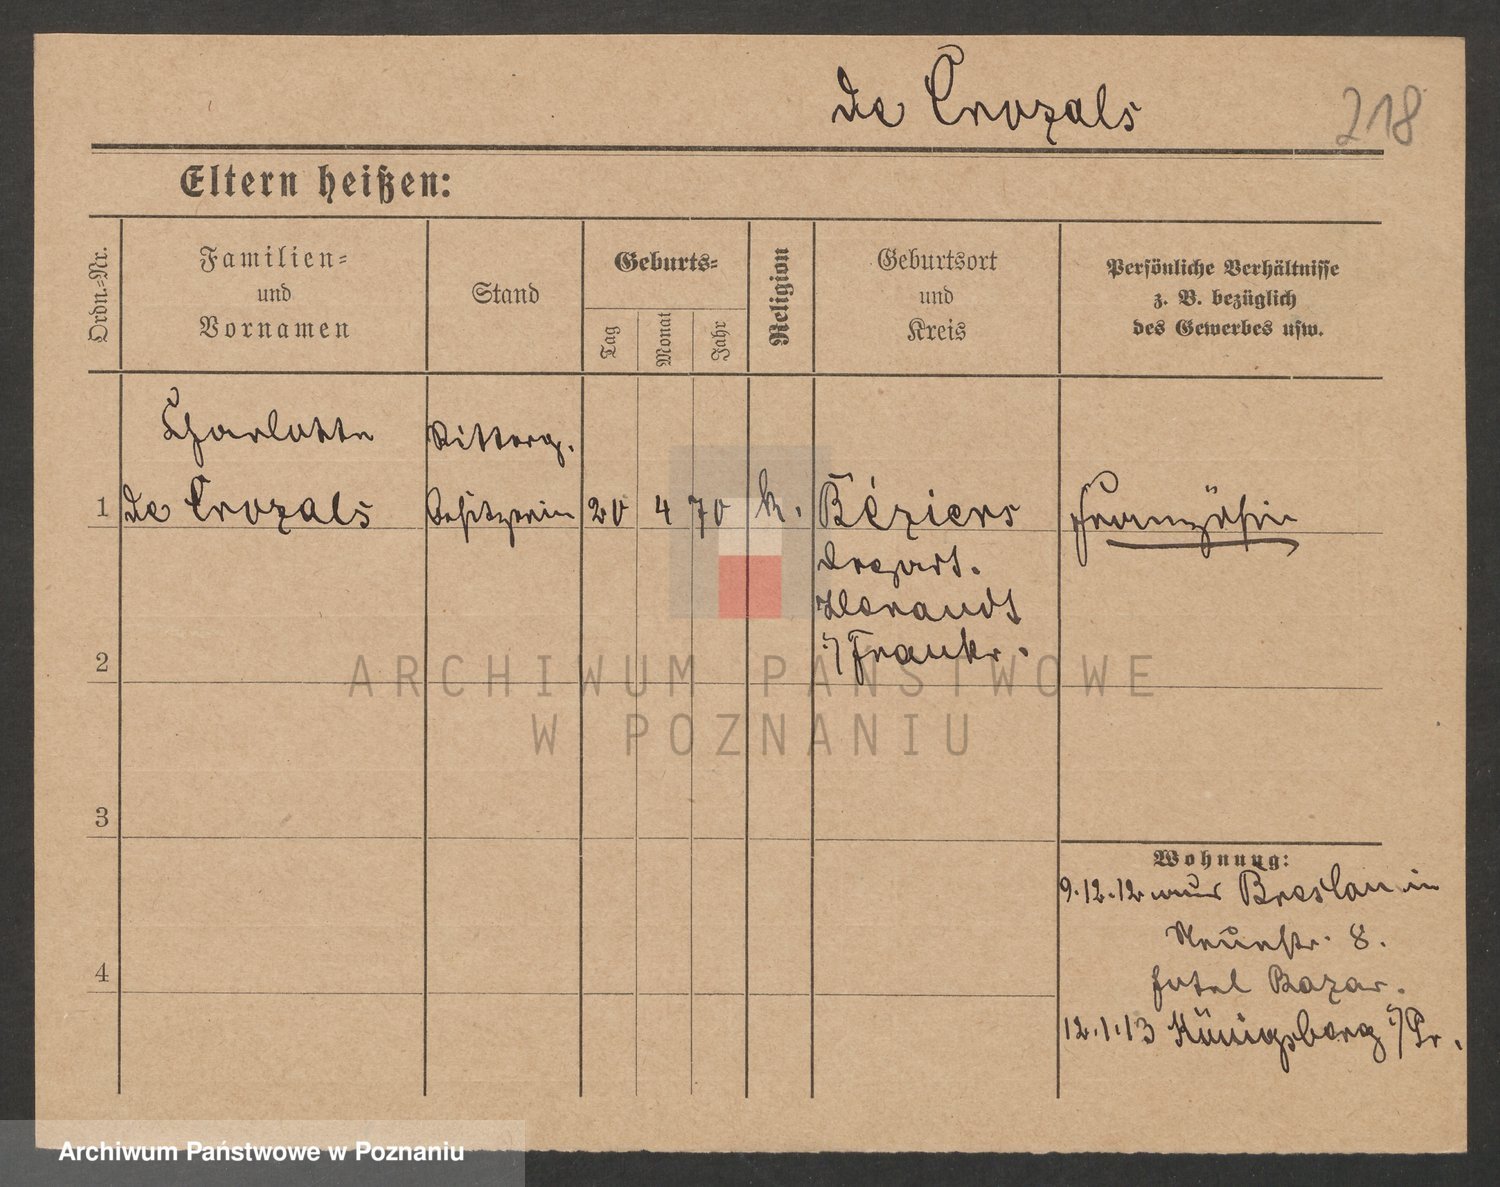 de Crozals
218
Eltern heißen:
Ordn.-Nr.
Familien-
und
Vornamen
Stand
Geburts-
Tag
Monat
Jahr
Religion
Geburtsort
und
Kreis
Persönliche Verhältnisse
z. B. bezüglich
des Gewerbes usw.
Charlotte
Ritterg.
1 de Crozals besitzerin 20 4 70 k. Béziers Französin
Depart.
i/Frankr.
2
3
4
Wohnung:
9.12.12 aus Breslau in
Neuestr. 8.
Hotel Bazar.
12.1.13 Königsberg i/Pr.
ARCHIWUM PAŃSTWOWE
W POZNANIU
Archiwum Państwowe w Poznaniu